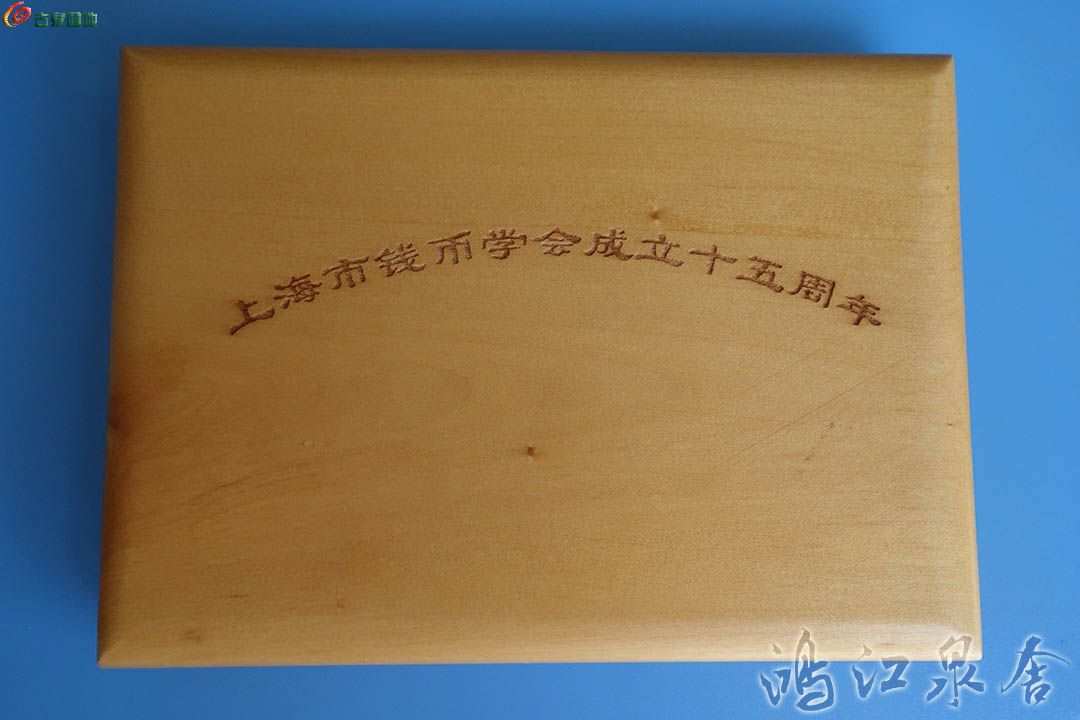 古泉园地
上海市钱币学会成立十五周年
鸿江泉舍